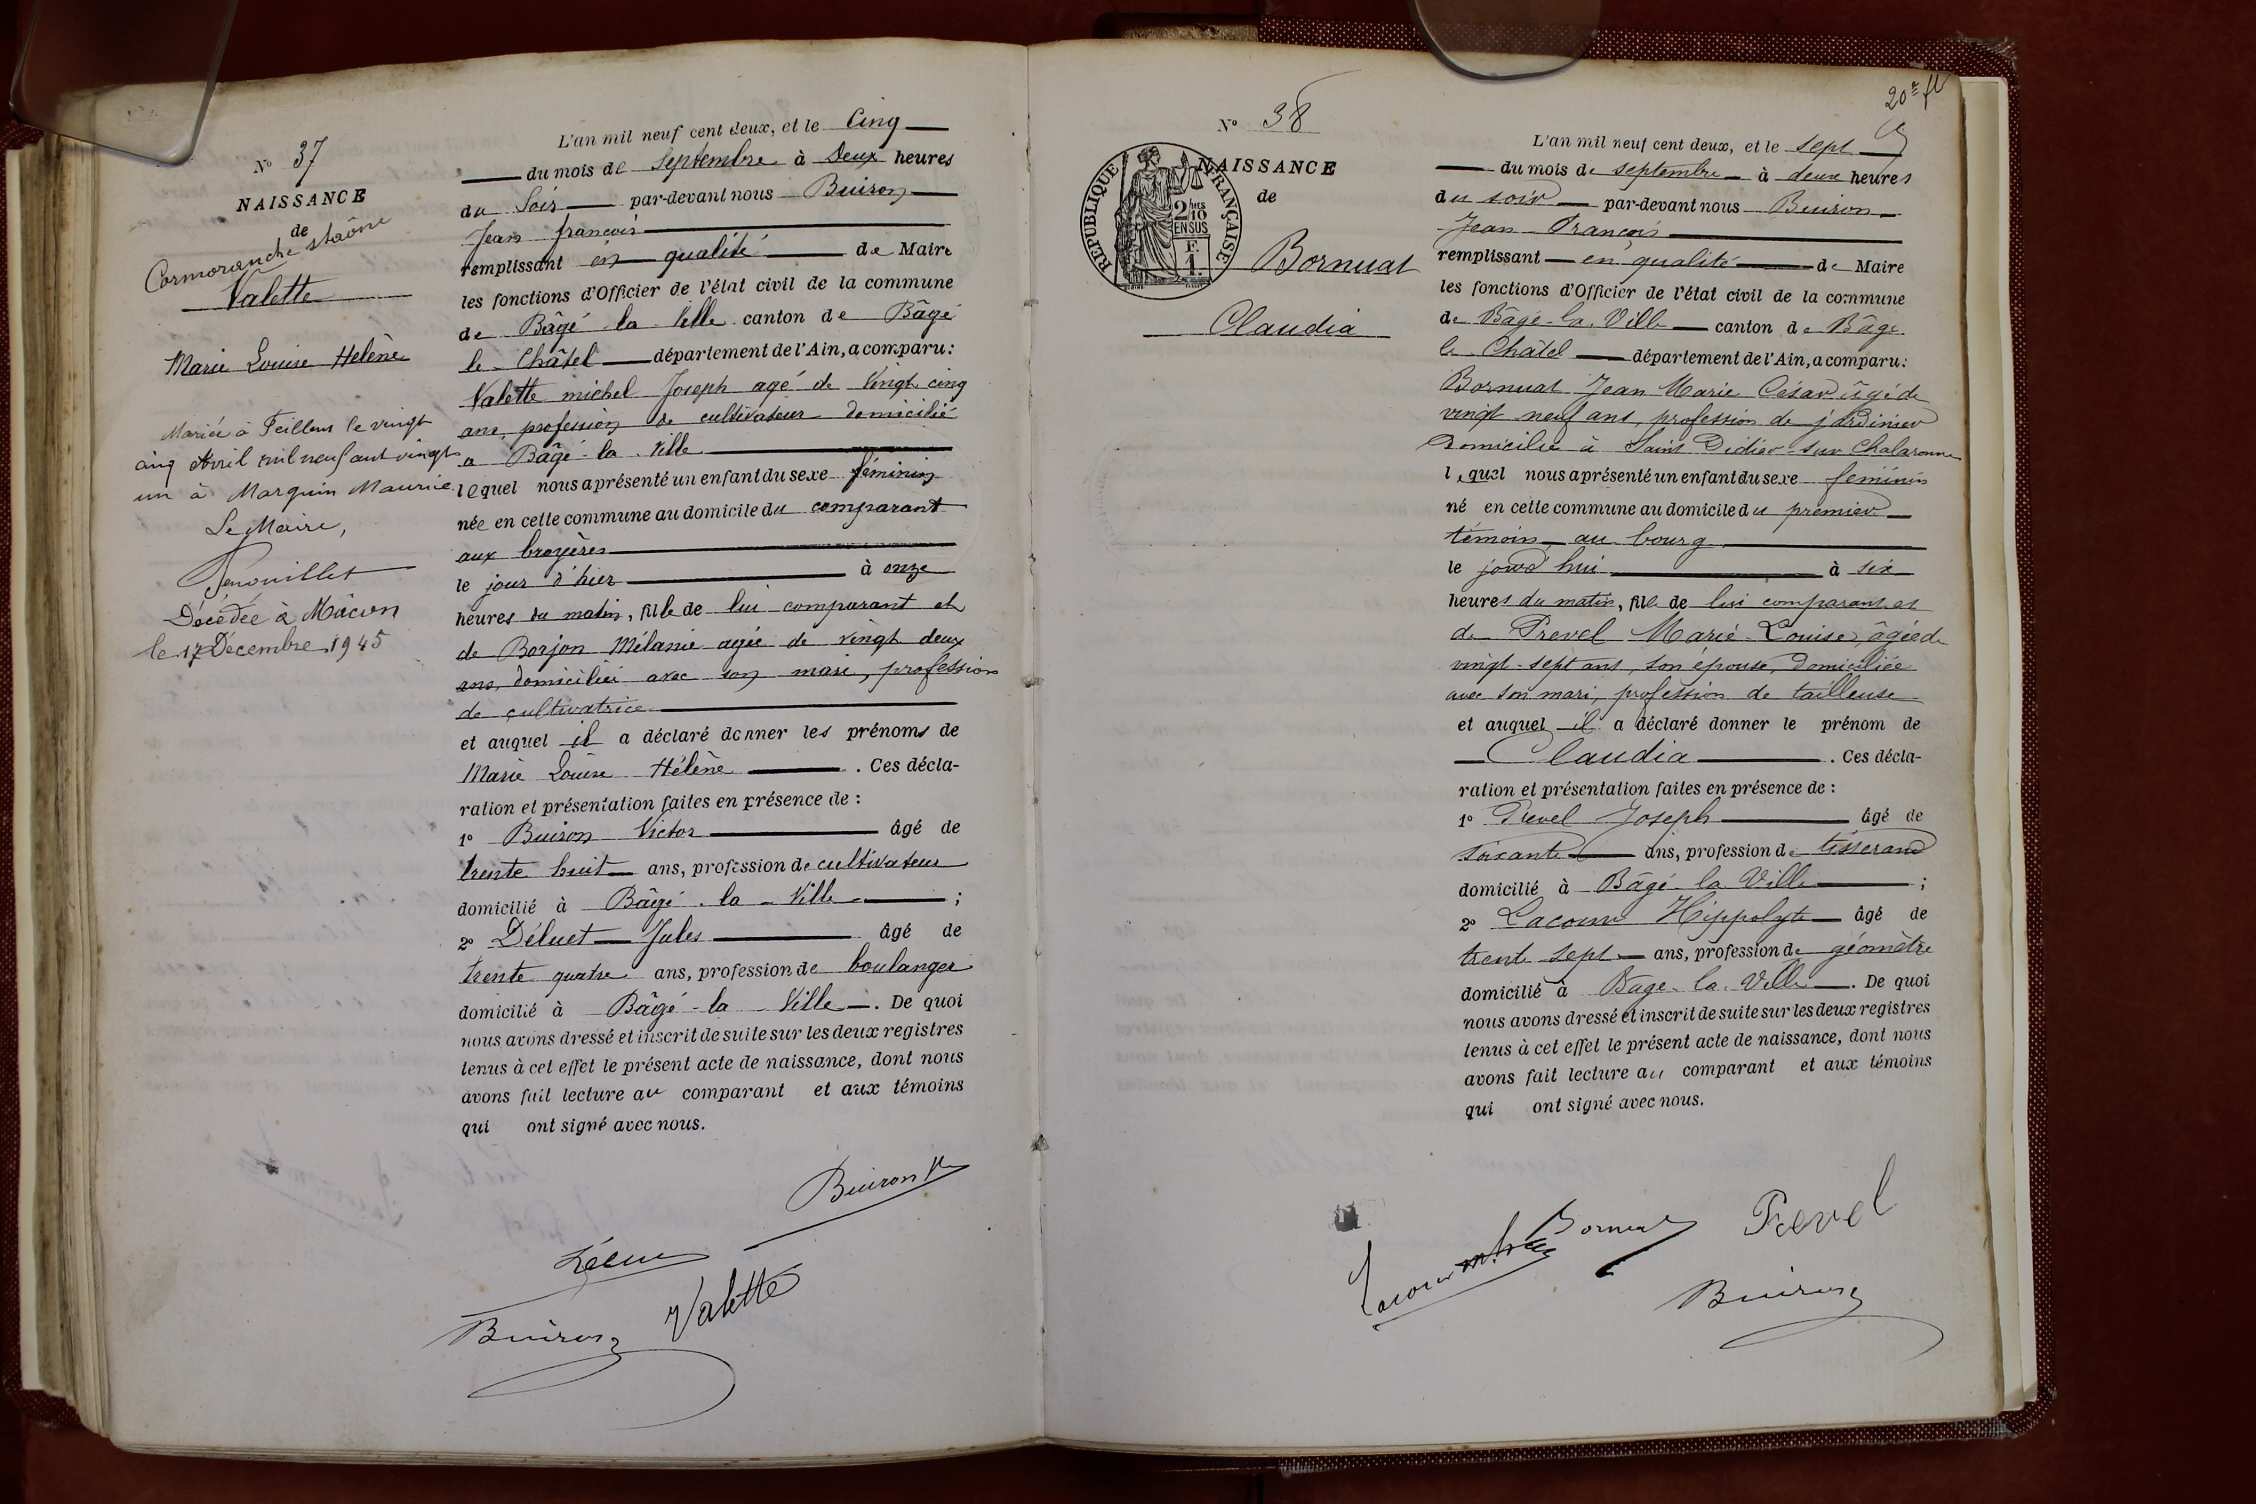 N° 37
NAISSANCE
de
Cormoranche s/saône
Valette
Marie Louise Helène
Mariée à Feillens le vingt
cinq Avril mil neuf cent vingt
un à Marguin Maurice
Le Maire,
Décédée à Mâcon
le 17 Décembre 1945
L'an mil neuf cent deux, et le Cinq
du mois de Septembre à Deux heures
du Soir par-devant nous Buiron
Jean françois
remplissant en qualité de Maire
les fonctions d'Officier de l'état civil de la commune
de Bâgé la Ville canton de Bâgé
le Châtel département de l'Ain, a comparu:
Valette michel Joseph agé de Vingt cinq
ans, profession de cultivateur domicilié
a Bâgé-la-Ville
lequel nous a présenté un enfant du sexe féminin
née en cette commune au domicile du comparant
aux bruyères
le jour d'hier à onze
heures du matin, fille de lui comparant et
de Borjon Mélanie agée de vingt deux
ans, domiciliée avec son mari, profession
de cultivatrice
et auquel il a déclaré donner les prénoms de
Marie Louise Hélène. Ces décla-
ration et présentation faites en présence de :
1° Buiron Victor âgé de
trente huit ans, profession de cultivateur
domicilié à Bâgé-la-Ville ;
2° Déluet Jules âgé de
trente quatre ans, profession de boulanger
domicilié à Bâgé-la-Ville. De quoi
nous avons dressé et inscrit de suite sur les deux registres
tenus à cet effet le présent acte de naissance, dont nous
avons fait lecture au comparant et aux témoins
qui ont signé avec nous.
Buiron Vor
Buiron Valette
20e ft
N° 38
NAISSANCE
de
RÉPUBLIQUE FRANÇAISE
2/10
EN SUS
F.
1.
Bornuat
Claudia
L'an mil neuf cent deux, et le sept
du mois de septembre à deux heures
du soir par-devant nous Buiron
Jean François
remplissant en qualité de Maire
les fonctions d'Officier de l'état civil de la commune
de Bâgé-la-Ville canton de Bâgé
le Châtel département de l'Ain, a comparu:
Bornuat Jean Marie César âgé de
vingt neuf ans, profession de jardinier
domicilié à Saint Didier-sur Chalaronne
lequel nous a présenté un enfant du sexe féminin
né en cette commune au domicile du premier
témoin au bourg
le jourd'hui à six
heures du matin, fille de lui comparant et
de Prevel Marie-Louise, âgée de
vingt-sept ans, son épouse, domiciliée
avec son mari, profession de tailleuse
et auquel il a déclaré donner le prénom de
Claudia. Ces décla-
ration et présentation faites en présence de :
1° Prevel Joseph âgé de
soixante ans, profession de tisserand
domicilié à Bâgé-la-Ville ;
2° Lacour Hippolyte âgé de
trente sept ans, profession de géomètre
domicilié à Bâgé-la-Ville. De quoi
nous avons dressé et inscrit de suite sur les deux registres
tenus à cet effet le présent acte de naissance, dont nous
avons fait lecture au comparant et aux témoins
qui ont signé avec nous.
Bornuat Prevel
Lacour
Buiron